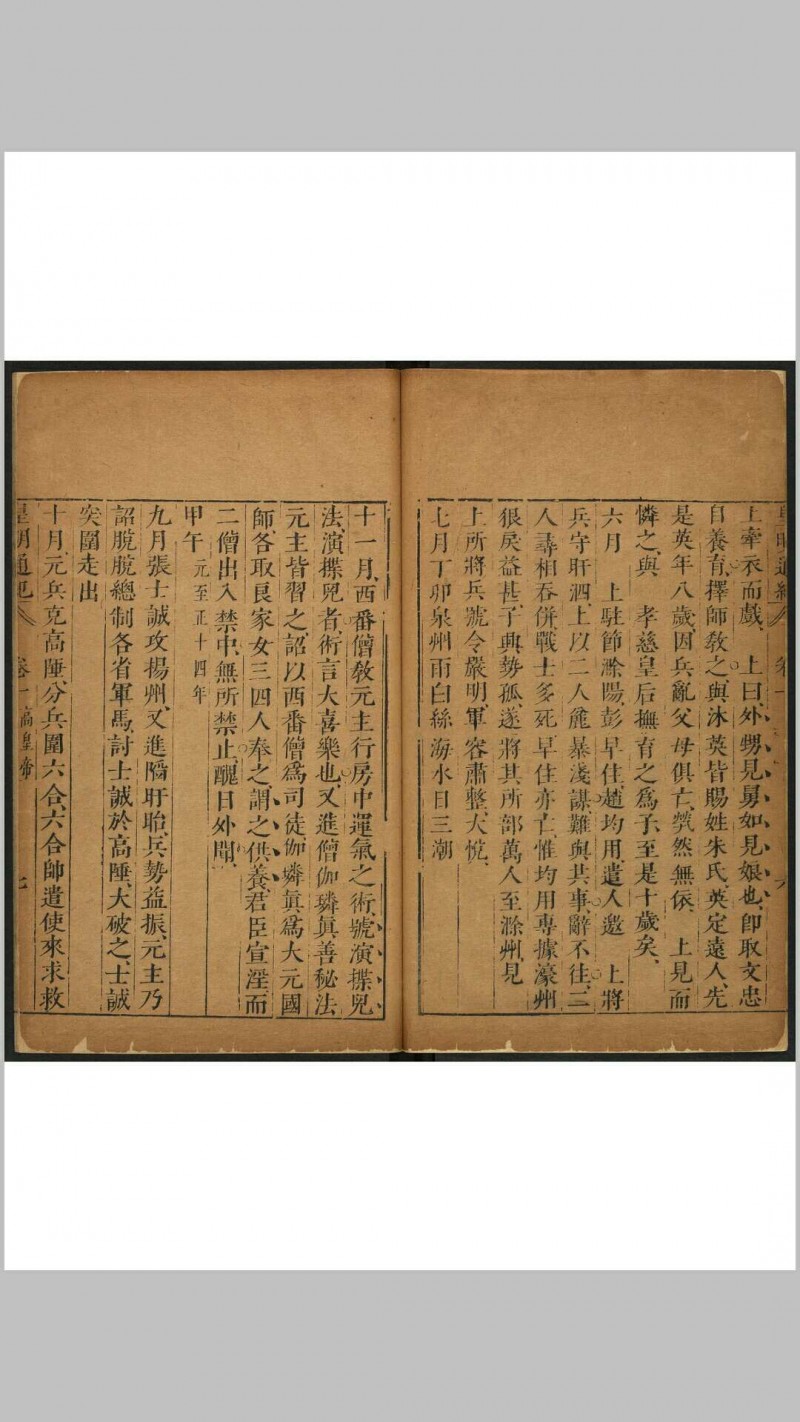 上牽衣而戲、 上曰、外甥見舅如見娘也、卽取文忠
自養育、擇師敎之、與沐英皆賜姓朱氏、英定遠人、先
是英年八歲、因兵亂父母俱亡、煢然無依、 上見而
憐之、與 孝慈皇后撫育之爲子、至是十歲矣、
六月 上駐節滁陽、彭早住、趙均用、遣人邀 上將
兵守盱泗、上以二人麄暴淺謀、難與共事、辭不往、二
人壽相吞併、戰士多死、早住亦亡、惟均用專據濠州
狠戾益甚、子興勢孤、遂將其所部萬人至滁州、見
上所將兵號令嚴明、軍容肅整、大悅、
七月丁卯泉州雨白絲 海水日三潮
十一月、西番僧敎元主行房中運氣之術、號演揲兒
法、演揲兒者、術言大喜樂也、又進僧伽璘眞善秘法
元主皆習之、詔以西番僧爲司徒、伽璘眞爲大元國
師、各取良家女三四人奉之、謂之供養、君臣宣淫、而
二僧出入禁中、無所禁止、醜日外聞、
甲午 元至正十四年
九月張士誠攻揚州、又進陷盱眙、兵勢益振、元主乃
詔脫脫總制各省軍馬、討士誠於高陲、大破之、士誠
突圍走出
十月、元兵克高陲、分兵圍六合、六合師遣使來求救
皇明通紀 卷一高皇帝 七